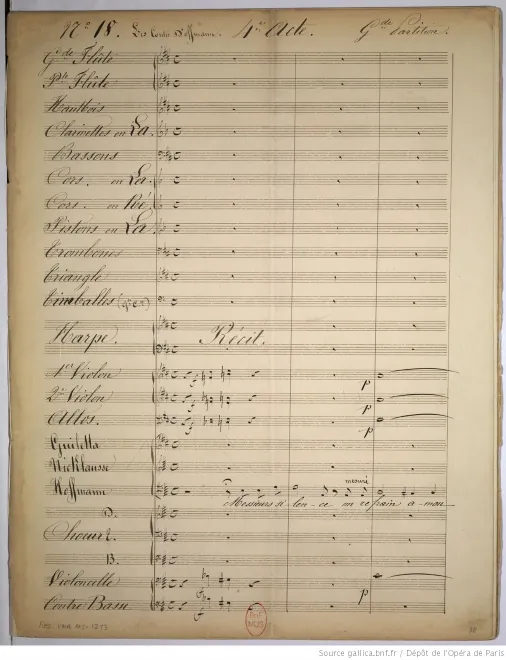 Nº 18. Les Contes d'Hoffmann. 4me Acte. Gde Partition.
Gde Flûte
Pte Flûte
Hautbois
Clarinettes en La.
Bassons
Cors. en La.
Cors. en Ré.
Pistons en La
Trombones
Triangle
Timballes
Harpe. Récit.
1er Violon
2e Violon
Altos.
p
p
p
Giulietta
Nicklausse
Hoffmann
mesuré
Messieurs silence un refrain a-mou
D.
Chœur.
B.
Violoncelle
p
Contre Basse
BnF
MUS
Source gallica.bnf.fr / Dépôt de l'Opéra de Paris